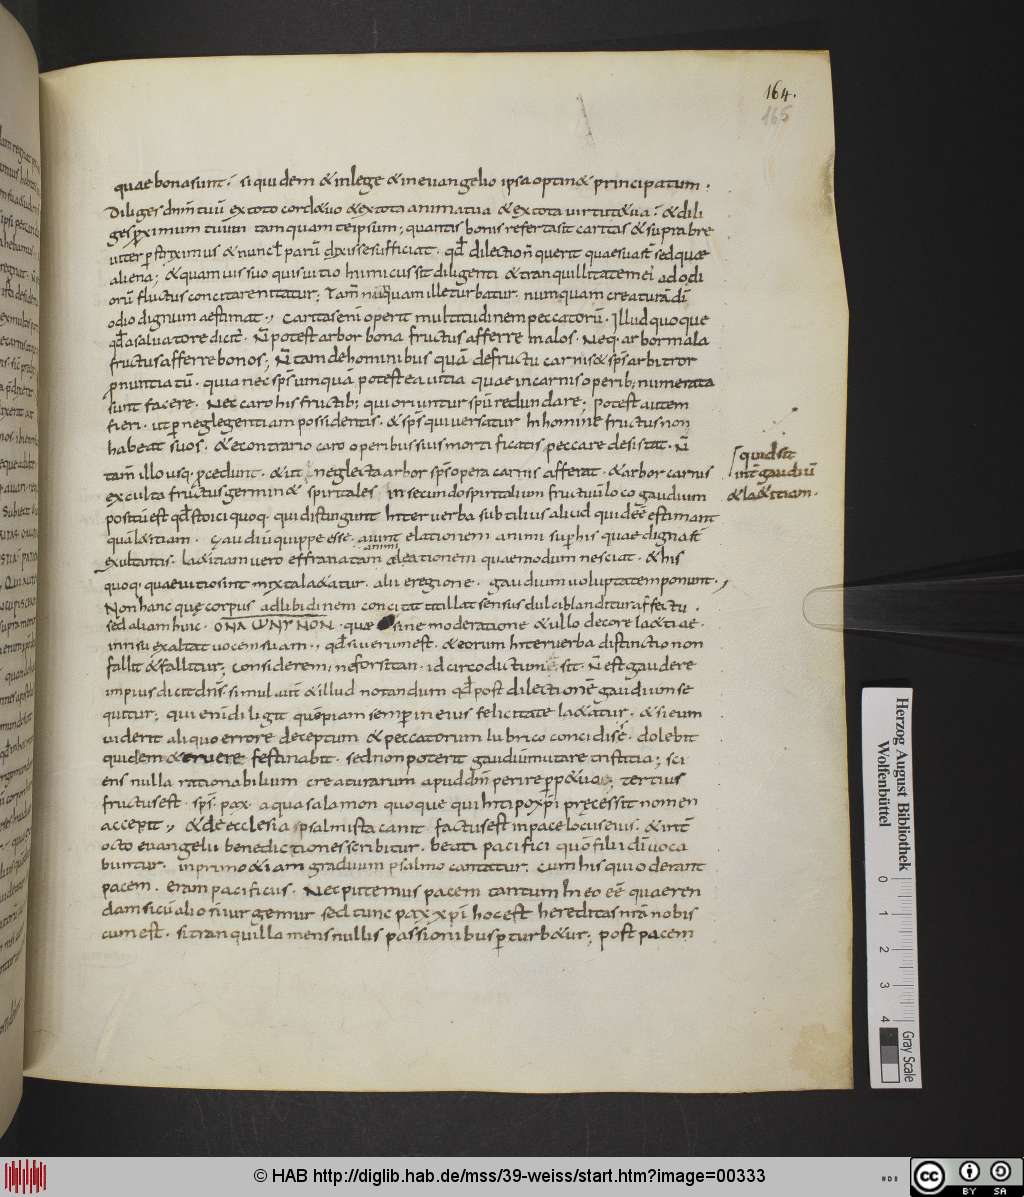 164.
165
quae bona sunt. siquidem & in lege & in evangelio ipsa optin& principatum.
Diliges dnm tuū ex toto corde tuo & ex tota anima tua & ex tota virtute tua. & dili
ges proximum tuum tamquam te ipsum; quantis bonis referta sit caritas & supra bre
viter perstrīximus & nunc parū dixisse sufficiat. qd dilectio ñ querit quae sua st sed quae
aliena; & quamvis suo quis vitio inimicus sit diligenti & tranquillitatem ei ad odi
orū fluctus concitare nitatur; Tam̄ nūquam ille turbatur. numquam creaturā di
odio dignum aestimat., Caritas eni operit multitudinem peccatorū. Illud quoque
qd a salvatore dicit. N̄ potest arbor bona fructus afferre malos. Neq. arbor mala
fructus afferre bonos; N̄ tam de hominibus quā de fructu carnis & sps arbitror
pnuntiatū. quia nec sps umquā potest ea vitia quae in carnis operib; numerata
sunt facere. Nec caro his fructib; qui oriuntur spu redundare; potest autem
fieri. ut p neglegentiam possidentis. & sps qui versatur in homine fructus non
habeat suos. & e contrario caro operibus suis mortificatis peccare desistat. N̄
tam̄ illo usq. pcedunt. & ut neglecta arbor sps opera carnis afferat. & arbor carnis
exculta fructus germin& spiritales. in secundo spiritalium fructuū loco gaudium
positū est qd stoici quoq. qui distingunt inter verba subtilius aliud quid eē estimant
quā laetitiam. Gaudiū quippe esse. aiunt elationem animi super his quae digna st
animi
exultantis. laetitiam vero effrenatam elationem quae modum nesciat. & his
quoq. quae vitio sint mixta laetatur. alii e regione. gaudium voluptatem ponunt.,
Non hanc quę corpus ad libidinem concitat titillat sensus dulci blanditur affectu.
sed aliam huic. quae sine moderatione & ullo decore laetitiae.
in risu exaltat vocem suam., qd si verum est. & eorum inter verba distinctio non
fallit & fallitur; Consideremus ne forsitan. idcirco dictum sit. N̄ est gaudere
impiis dicit dns. simul aut & illud notandum qd post dilectionē gaudium se
quitur; qui eni diligit quēpiam semper in eius felicitate laetatur. & si eum
viderit aliquo errore deceptum & peccatorum lubrico concidisse. dolebit
quidem & eruere festinabit. sed non poterit gaudiū mutare tristitia; sci
ens nulla rationabilium creaturarum apud dm perire perpetuo; tertius
fructus est. sps. pax. a qua salamon quoque qui in tipo xpi pręcessit nomen
accepit., & de ecclesia psalmista canit factus est in pace locus eius. & int
octo evangelii benedictiones scribitur. beati pacifici quō filii di voca
buntur. in primo etiam graduum psalmo cantatur. cum his qui oderant
pacem. eram pacificus. Nec putemus pacem tantum in eo eē quaeren
dam si cū alio ñ iurgemur sed tunc pax xpi hoc est hereditas nra nobis
cum est. si tranquilla mens nullis passionibus perturbetur; post pacem
quid sit
int gaudiū
& laetitiam.
Herzog August Bibliothek
Wolfenbüttel
0 1 2 3 4
Gray Scale
© HAB http://diglib.hab.de/mss/39-weiss/start.htm?image=00333
cc BY SA